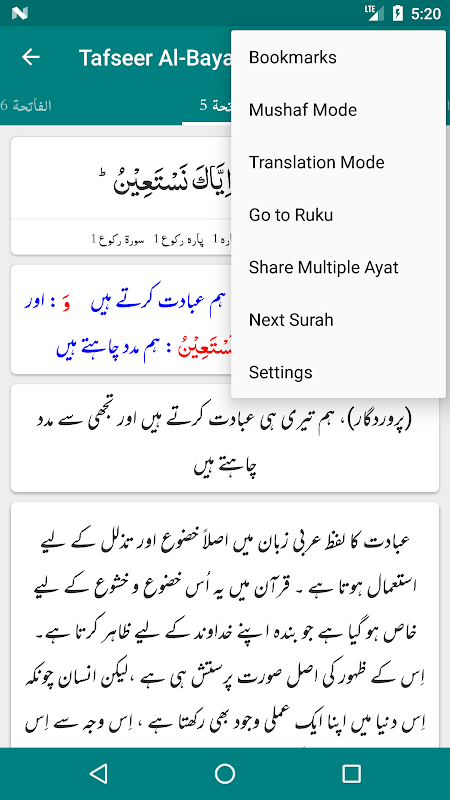 LTE 5:20
Tafseer Al-Baya
الفاتحة 6
تحة 5
Bookmarks
Mushaf Mode
Translation Mode
Go to Ruku
Share Multiple Ayat
Next Surah
Settings
اِيَّاكَ نَسْتَعِيْنُ ؕ
پارہ رکوع 1 سورۃ رکوع 1
ہم عبادت کرتے ہیں وَ : اور
نَسْتَعِيْنُ : ہم مدد چاہتے ہیں
(پروردگار)، ہم تیری ہی عبادت کرتے ہیں اور تجھی سے مدد
چاہتے ہیں
عبادت کا لفظ عربی زبان میں اصلاً خضوع اور تذلل کے لیے
استعمال ہوتا ہے ۔ قرآن میں یہ اُس خضوع و خشوع کے لیے
خاص ہو گیا ہے جو بندہ اپنے خداوند کے لیے ظاہر کرتا ہے۔
اِس کے ظہور کی اصل صورت پرستش ہی ہے ،لیکن انسان چونکہ
اِس دنیا میں اپنا ایک عملی وجود بھی رکھتا ہے ، اِس وجہ سے اِس